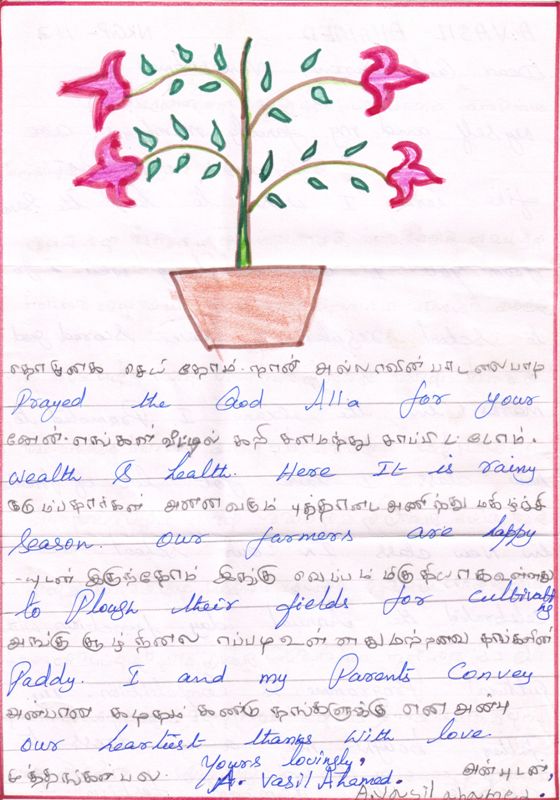 தொழுகை செய்தோம். நான் அல்லாவின் பாடலை பாடி
Prayed the God Alla for your
னேன். எங்கள் வீட்டில் கறி சமைத்து சாப்பிட்டோம்.
wealth & health. Here It is rainy
அனைவரும் புத்தாடை அணிந்து மகிழ்ச்சி
Season. Our farmers are happy
-யுடன் இருந்தோம் இங்கு வெப்பம் மிகுதியாக உள்ளது
to Plough their fields for cultivating
அங்கு சூழ்நிலை எப்படி உள்ளது மற்றவை தங்களின்
Paddy. I and my Parents Convey
அன்பான கடிதம் கண்டு தங்களுக்கு என் அன்பு
our heartiest thanks with love.
Yours lovingly,
முத்தங்கள் பல. அன்புடன்,
A. Vasil Ahamed.
A. Vasil Ahamed.